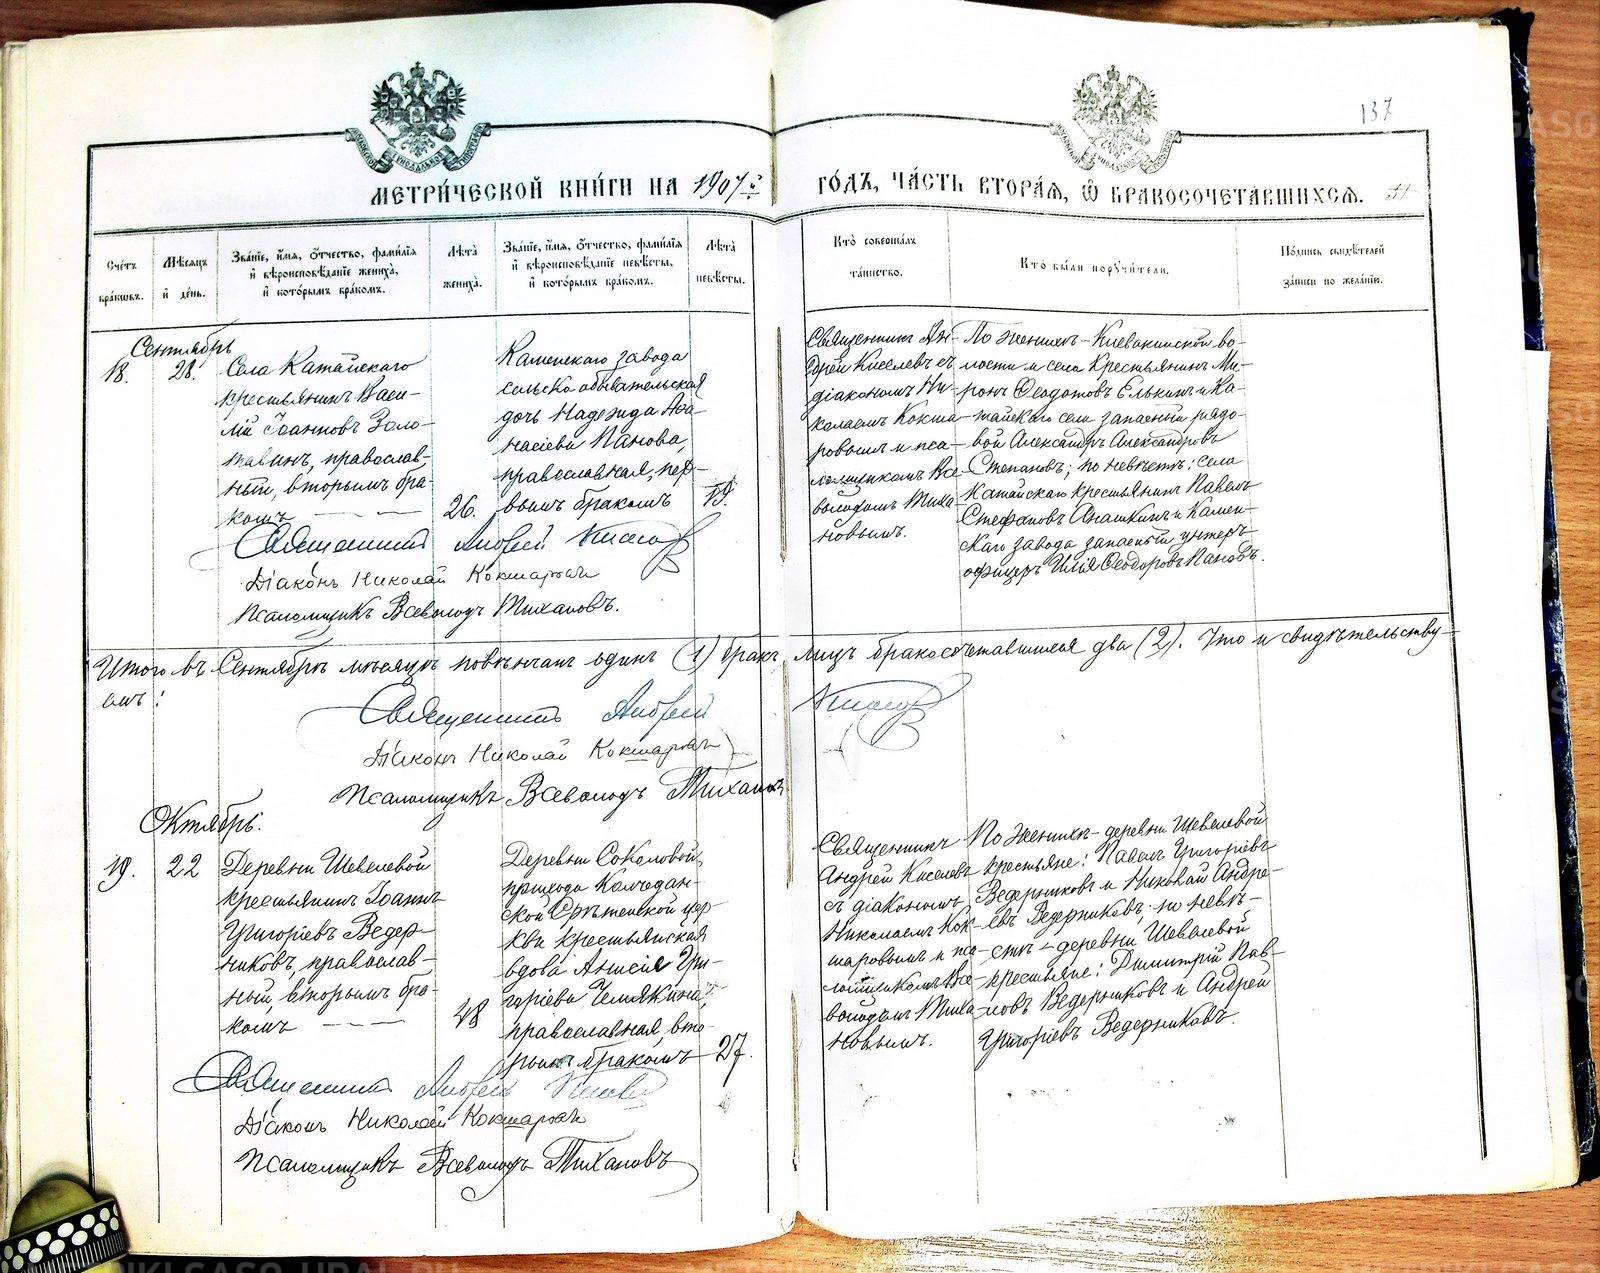 137
МЕТРИ́ЧЕСКОЙ КНИ́ГИ НА 1907й ГО́ДЪ, ЧА́СТЬ ВТОРА́Я, Ѡ БРАКОСОЧЕТА́ВШИХСЯ.
Сче́тъ бра́кшвъ.
Мѣ́сяцъ и҆ де́нь.
Зва́нїе, и҆́мя, ѻ҆́тчество, фами́лїя и҆ вѣроисповѣ́данїе жениха̀, и҆ кото́рымъ бра́комъ.
Лѣ́та жениха̀.
Зва́нїе, и҆́мя, ѻ҆́тчество, фами́лїя и҆ вѣроисповѣ́данїе невѣ́сты, и҆ кото́рымъ бра́комъ.
Лѣ́та невѣ́сты.
Кто̀ соверша́лъ та́инство.
Кто̀ бы́ли поручи́тели.
По́дпись свидѣ́телей за́писи по жела́нїю.
Сентябрь
18.
28.
Села Катайскаго
крестьянинъ Васи-
лій Іоанновъ Золо-
тавинъ, православ-
ный, вторымъ бра-
комъ
26.
Каменскаго завода
сельско обывательская
дочь Надежда Афа-
насіева Панова,
православная, пер-
вымъ бракомъ
19.
Священникъ Ан-
дрей Киселевъ съ
діакономъ Ни-
колаемъ Кокша-
ровымъ и пса-
ломщикомъ Все-
володомъ Тиха-
новымъ.
По женихѣ - Клевакинской во-
лости и села крестьянинъ Ми-
ронъ Ѳеодотовъ Елькинъ и Ка-
тайскаго села запасный рядо-
вой Александръ Александровъ
Степановъ; по невѣстѣ: села
Катайскаго крестьянинъ Павелъ
Стефановъ Анашкинъ и Камен-
скаго завода запасный унтеръ-
офицеръ Илія Ѳеодоровъ Пановъ.
Священникъ Андрей Киселевъ
Діаконъ Николай Кокшаровъ
Псаломщикъ Всеволодъ Тихановъ.
Итого въ Сентябрѣ мѣсяцѣ повѣнчанъ одинъ (1) бракъ, лицъ бракосочетавшихся два (2). Что и свидѣтельству-
емъ:
Священникъ Андрей Киселевъ
Діаконъ Николай Кокшаровъ
Псаломщикъ Всеволодъ Тихановъ
Октябрь.
19.
22
Деревни Шевелевой
крестьянинъ Іоаннъ
Григоріевъ Ведер-
никовъ, православ-
ный, вторымъ бра-
комъ
48
Деревни Соколовой,
прихода Колчедан-
ской Срѣтенской цер-
кви крестьянская
вдова Анисія Гри-
горіева Чемякина,
православная, вто-
рымъ бракомъ
27.
Священникъ
Андрей Киселевъ
съ діакономъ
Николаемъ Кок-
шаровымъ и пса-
ломщикомъ Все-
володомъ Тиха-
новымъ.
По женихѣ - деревни Шевелевой
крестьяне: Павелъ Григоріевъ
Ведерниковъ и Николай Андре-
евъ Ведерниковъ, по невѣ-
стѣ - деревни Шевелевой
крестьяне: Димитрій Пав-
ловъ Ведерниковъ и Андрей
Григоріевъ Ведерниковъ.
Священникъ Андрей Киселевъ
Діаконъ Николай Кокшаровъ
Псаломщикъ Всеволодъ Тихановъ